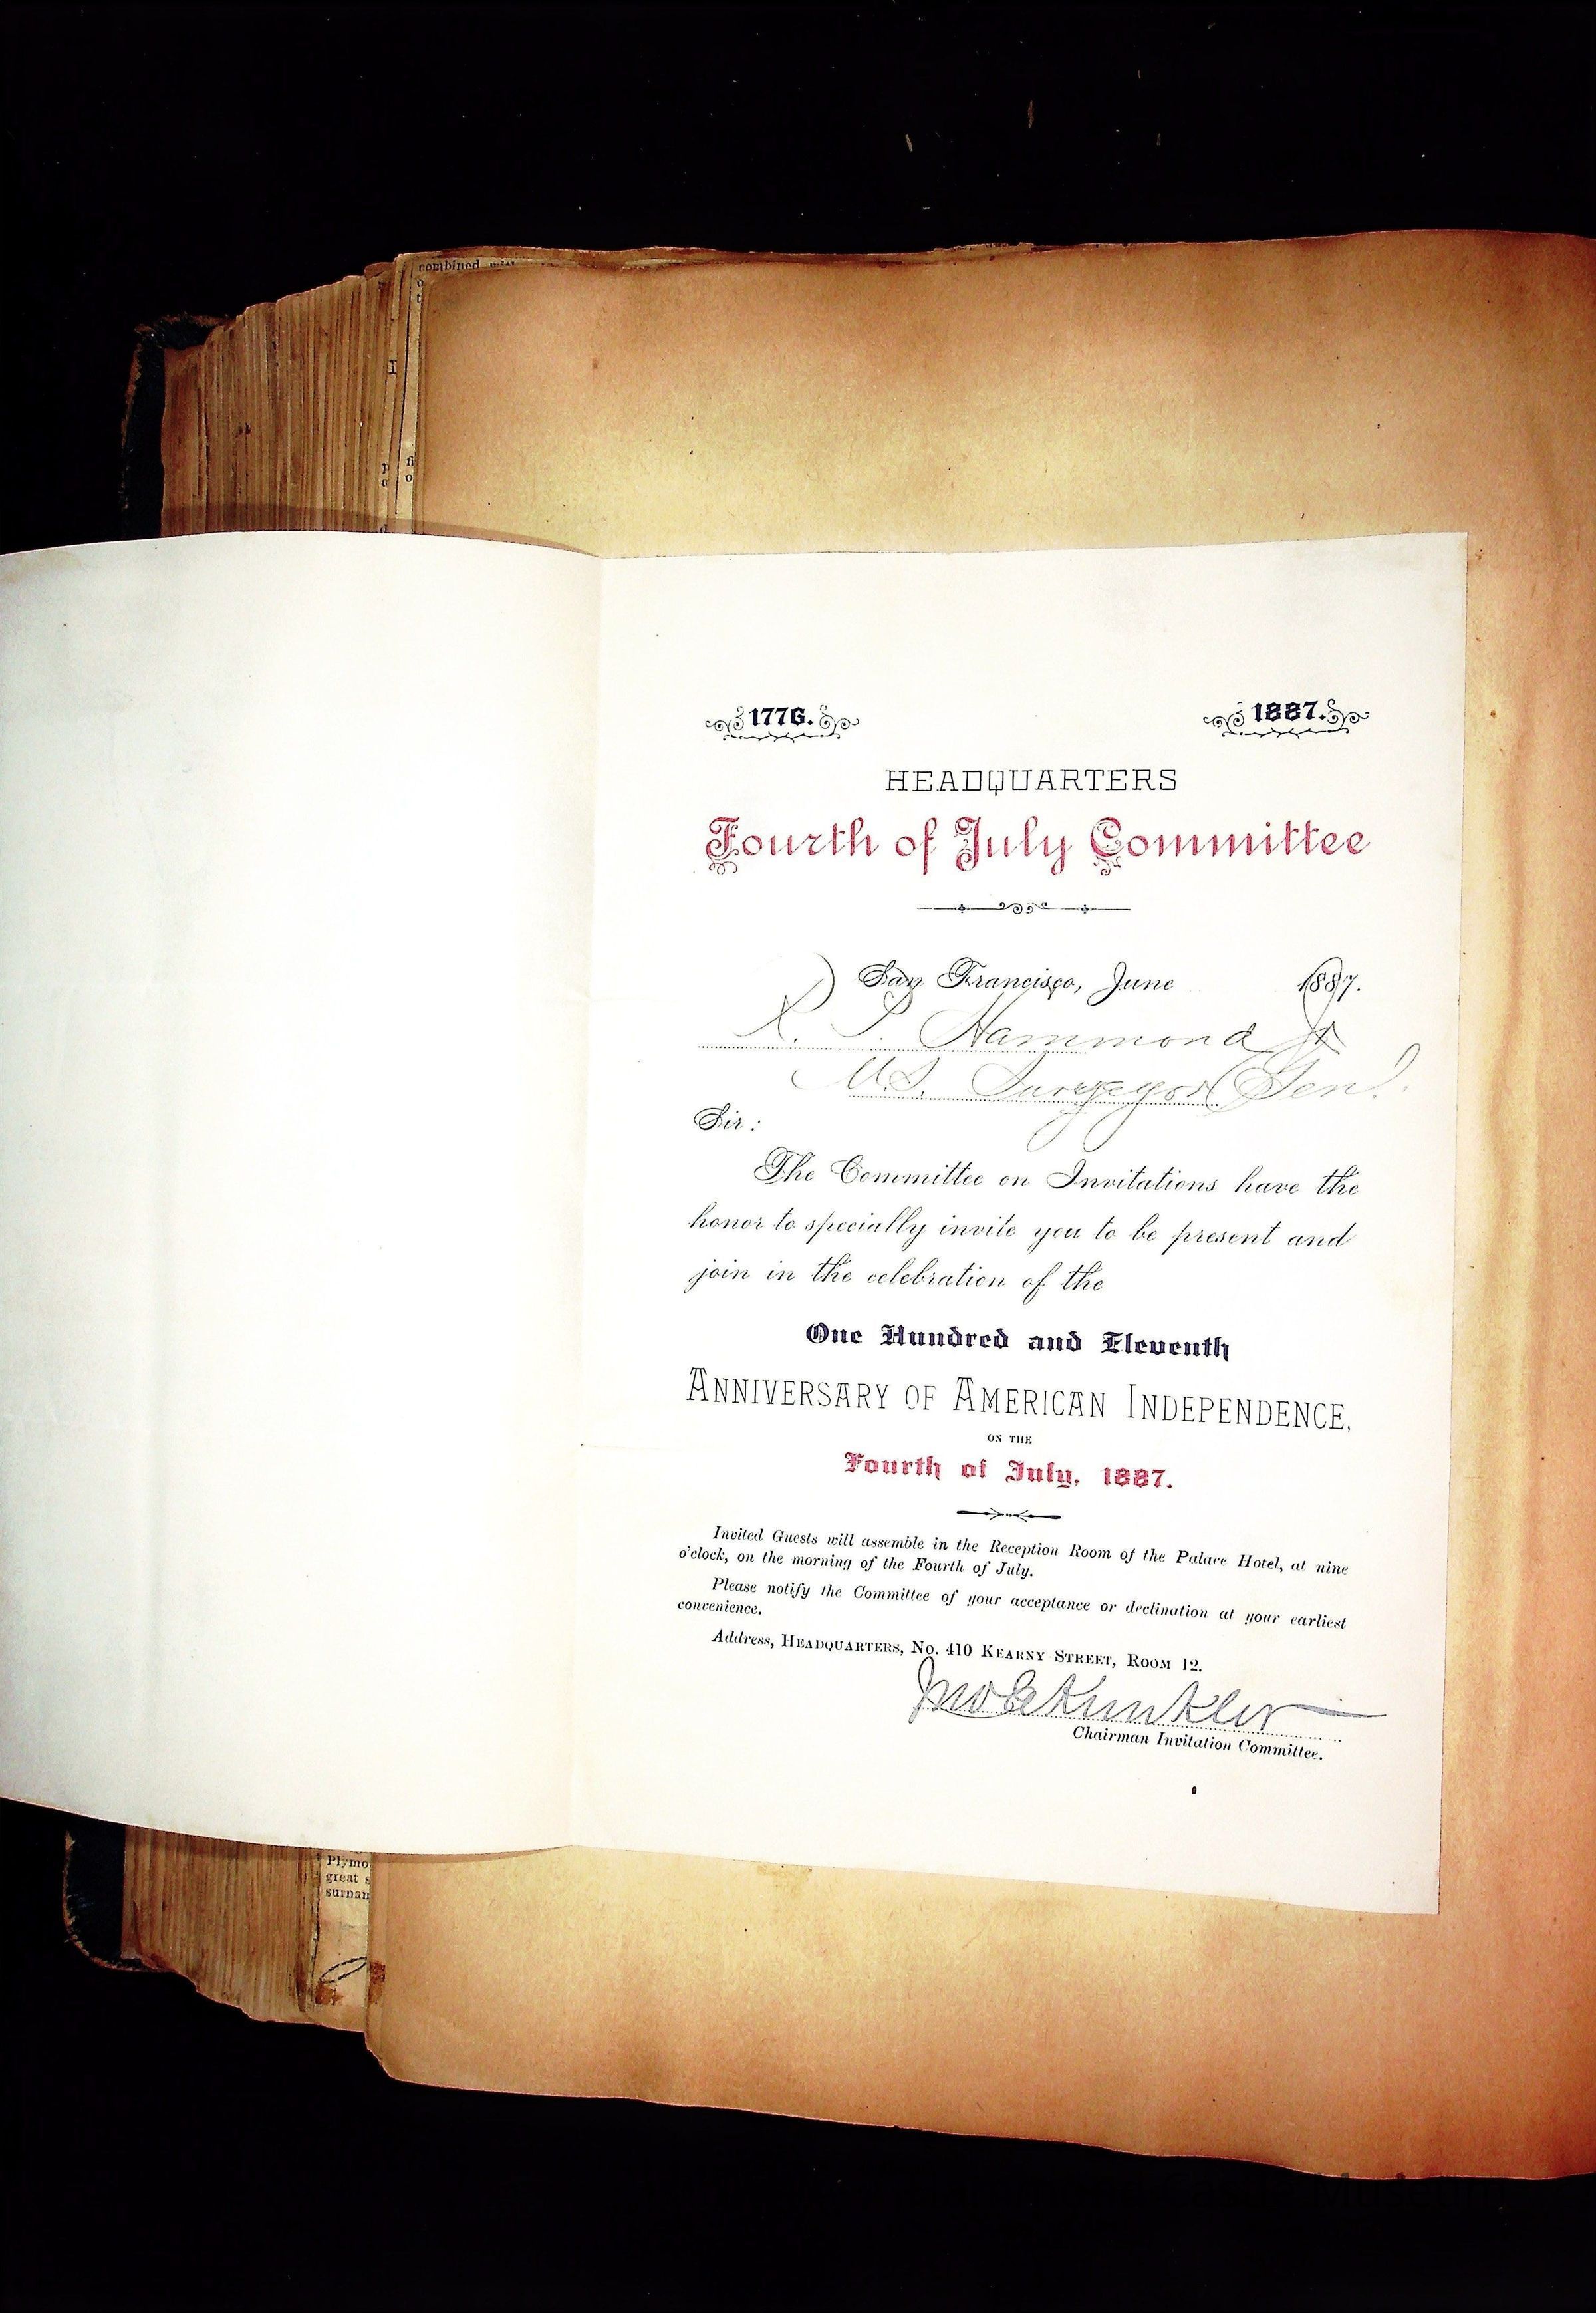 combined
1776.
1887.
HEADQUARTERS
Fourth of July Committee
San Francisco, June 1887.
R. P. Hammond Jr
U.S. Surveyor Genl.
Sir:
The Committee on Invitations have the
honor to specially invite you to be present and
join in the celebration of the
One Hundred and Eleventh
ANNIVERSARY OF AMERICAN INDEPENDENCE,
ON THE
Fourth of July, 1887.
Invited Guests will assemble in the Reception Room of the Palace Hotel, at nine
o'clock, on the morning of the Fourth of July.
Please notify the Committee of your acceptance or declination at your earliest
convenience.
Address, HEADQUARTERS, No. 410 KEARNY STREET, ROOM 12.
Jno E Kunkler
Chairman Invitation Committee.
Plymo
great s
surnan